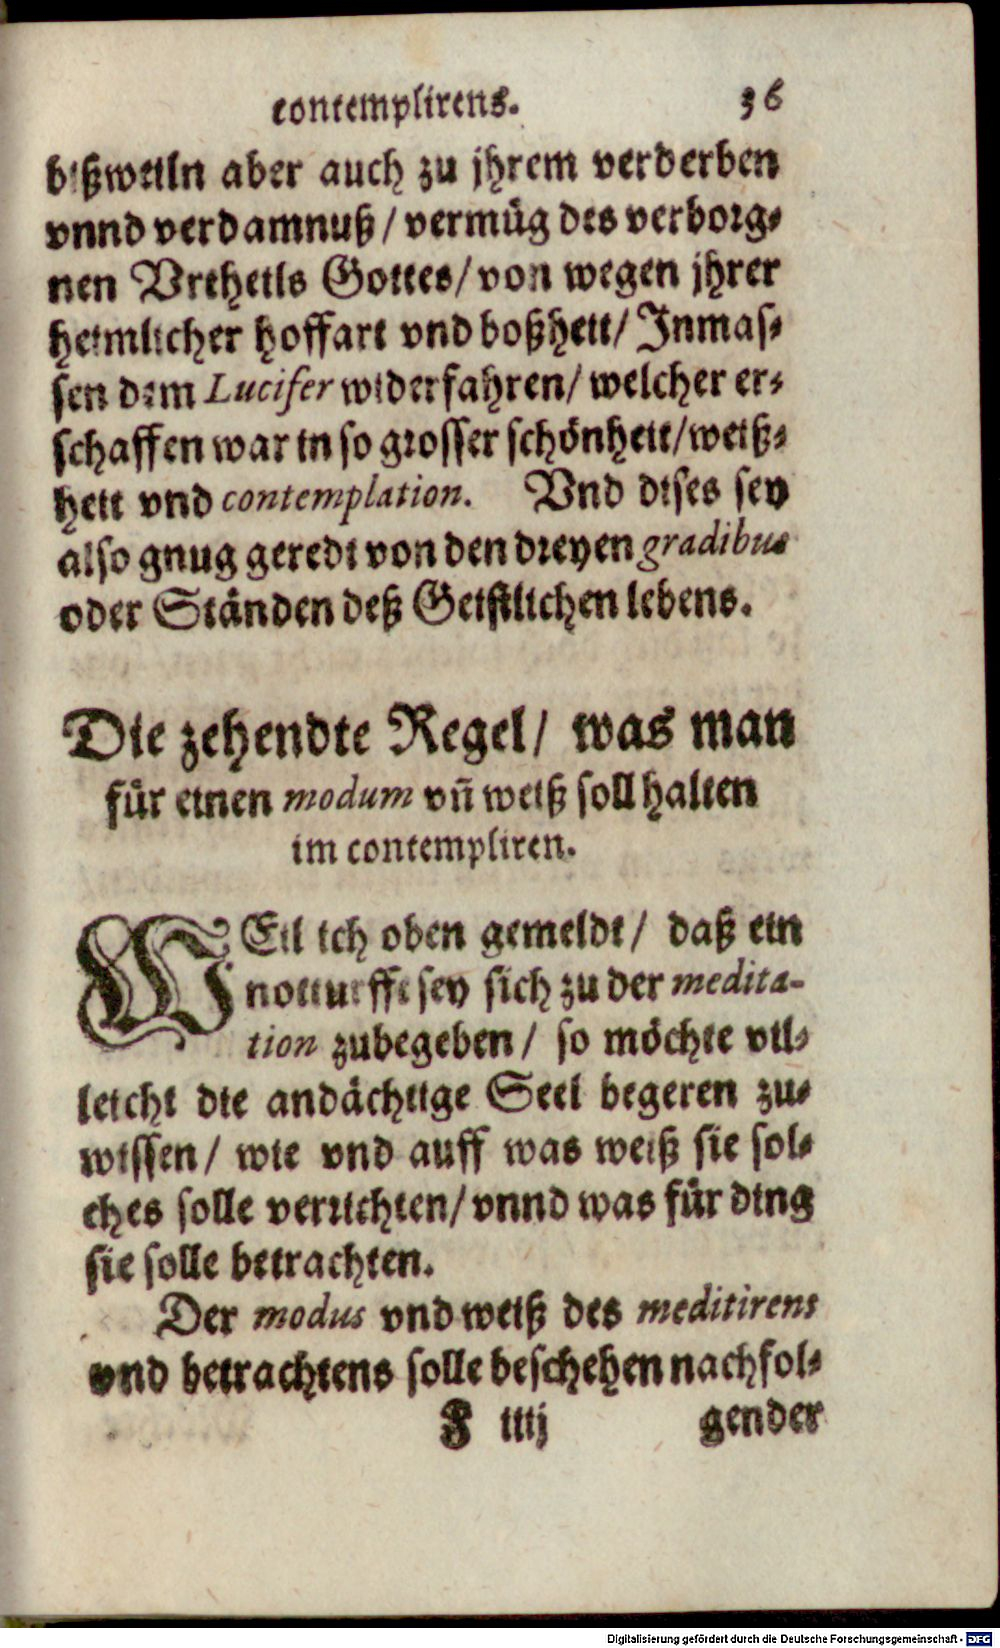 contemplirens. 36
bißweiln aber auch zu jhrem verderben
vnnd verdamnuß / vermüg des verborg-
nen Vrtheils Gottes/ von wegen jhrer
heimlicher hoffart vnd boßheit/ Inmas-
sen dem Lucifer widerfahren/ welcher er-
schaffen war in so grosser schönheit/weiß-
heit vnd contemplation. Vnd dises sey
also gnug geredt von den dreyen gradibus
oder Ständen deß Geistlichen lebens.
Die zehendte Regel/ was man
für einen modum vñ weiß soll halten
im contempliren.
WEil ich oben gemeldt/ daß ein
notturfft sey sich zu der medita-
tion zubegeben/ so möchte vil-
leicht die andächtige Seel begeren zu-
wissen/ wie vnd auff was weiß sie sol-
ches solle verrichten/ vnnd was für ding
sie solle betrachten.
Der modus vnd weiß des meditirens
vnd betrachtens solle beschehen nachfol-
F iiij gender
Digitalisierung gefördert durch die Deutsche Forschungsgemeinschaft - DFG